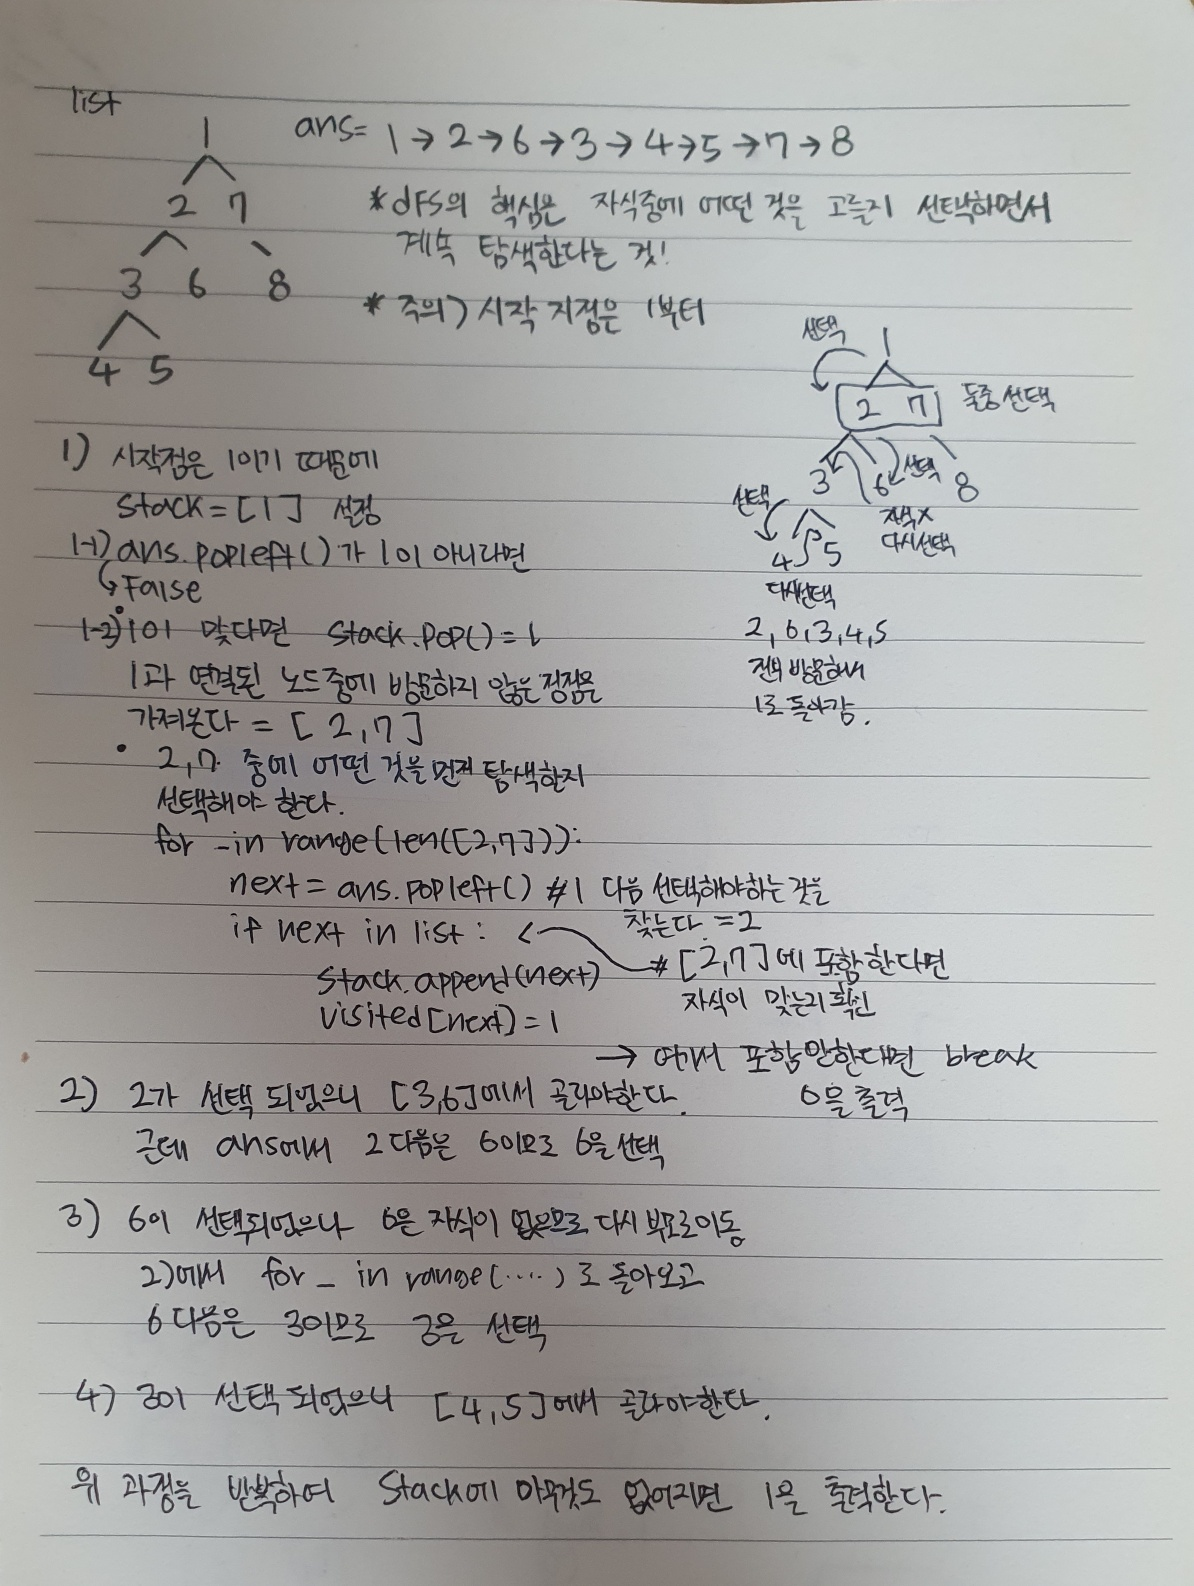 list
1
2 7
3 6 8
4 5
ans= 1→2→6→3→4→5→7→8
*dFS의 핵심은 자식중에 어떤 것을 고를지 선택하면서
계속 탐색한다는 것!
* 주의) 시작 지점은 1부터
선택
1
2 7 둘중 선택
3 6 선택 8
선택
자식x
다시선택
4 5
다시선택
2, 6, 3, 4, 5
전부 방문해서
1로 돌아감.
1) 시작점은 1이기 때문에
stack = [1] 설정
1-1) ans.popleft()가 1이 아니라면
False
1-2) 1이 맞다면 stack.pop() = 1
1과 연결된 노드중에 방문하지 않은 정점은
가져온다 = [2,7]
• 2,7 중에 어떤 것을 먼저 탐색할지
선택해야 한다.
for _ in range(len([2,7])):
next = ans.popleft() #1 다음 선택해야하는 것을
찾는다 = 2
if next in list :
* [2,7]에 포함한다면
자식이 맞는지 확인
stack.append(next)
visited[next] = 1
→ 여기서 포함안한다면 break
0을 출력
2) 2가 선택 되었으니 [3,6]에서 골라야한다.
근데 ans에서 2다음은 6이므로 6을 선택
3) 6이 선택되었으나 6은 자식이 없으므로 다시 부모로이동
2)에서 for _ in range(....)로 돌아오고
6다음은 3이므로 3을 선택
4) 3이 선택 되었으니 [4,5]에서 골라야한다.
위 과정을 반복하여 Stack에 아무것도 없어지면 1을 출력한다.